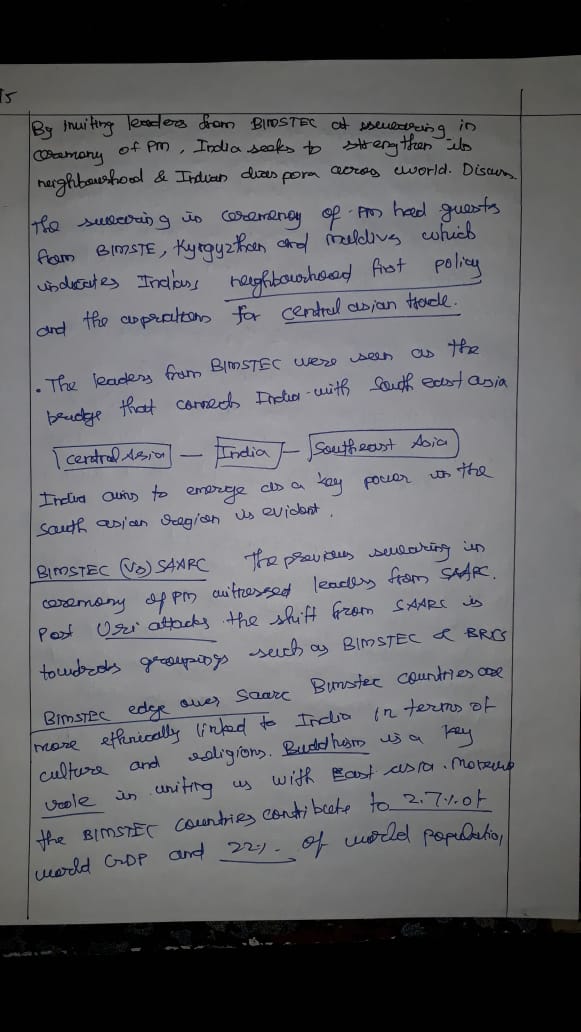 15
By inviting leaders from BIMSTEC at swearing in
ceremony of PM, India seeks to strengthen its
neighbourhood & Indian diaspora across world. Discuss
The swearing in ceremony of PM had guests
from BIMSTE, Kyrgyzthan and Maldives which
indicates India's neighbourhood first policy
and the aspirations for central asian trade.
. The leaders from BIMSTEC were seen as the
bridge that connects India with South east asia
Central Asia — India — Southeast Asia
India aims to emerge as a key power in the
South asian region is evident.
BIMSTEC (Vs) SAARC The previous swearing in
ceremony of PM witnessed leaders from SAARC.
Post Uri attacks the shift from SAARC is
towards groupings such as BIMSTEC & BRICS
BIMSTEC edge over Saarc Bimstec countries are
more ethnically linked to India in terms of
culture and religions. Buddhism is a key
role in uniting us with East asia. Moreover
the BIMSTEC countries contribute to 2.7% of
world GDP and 22% of world population,